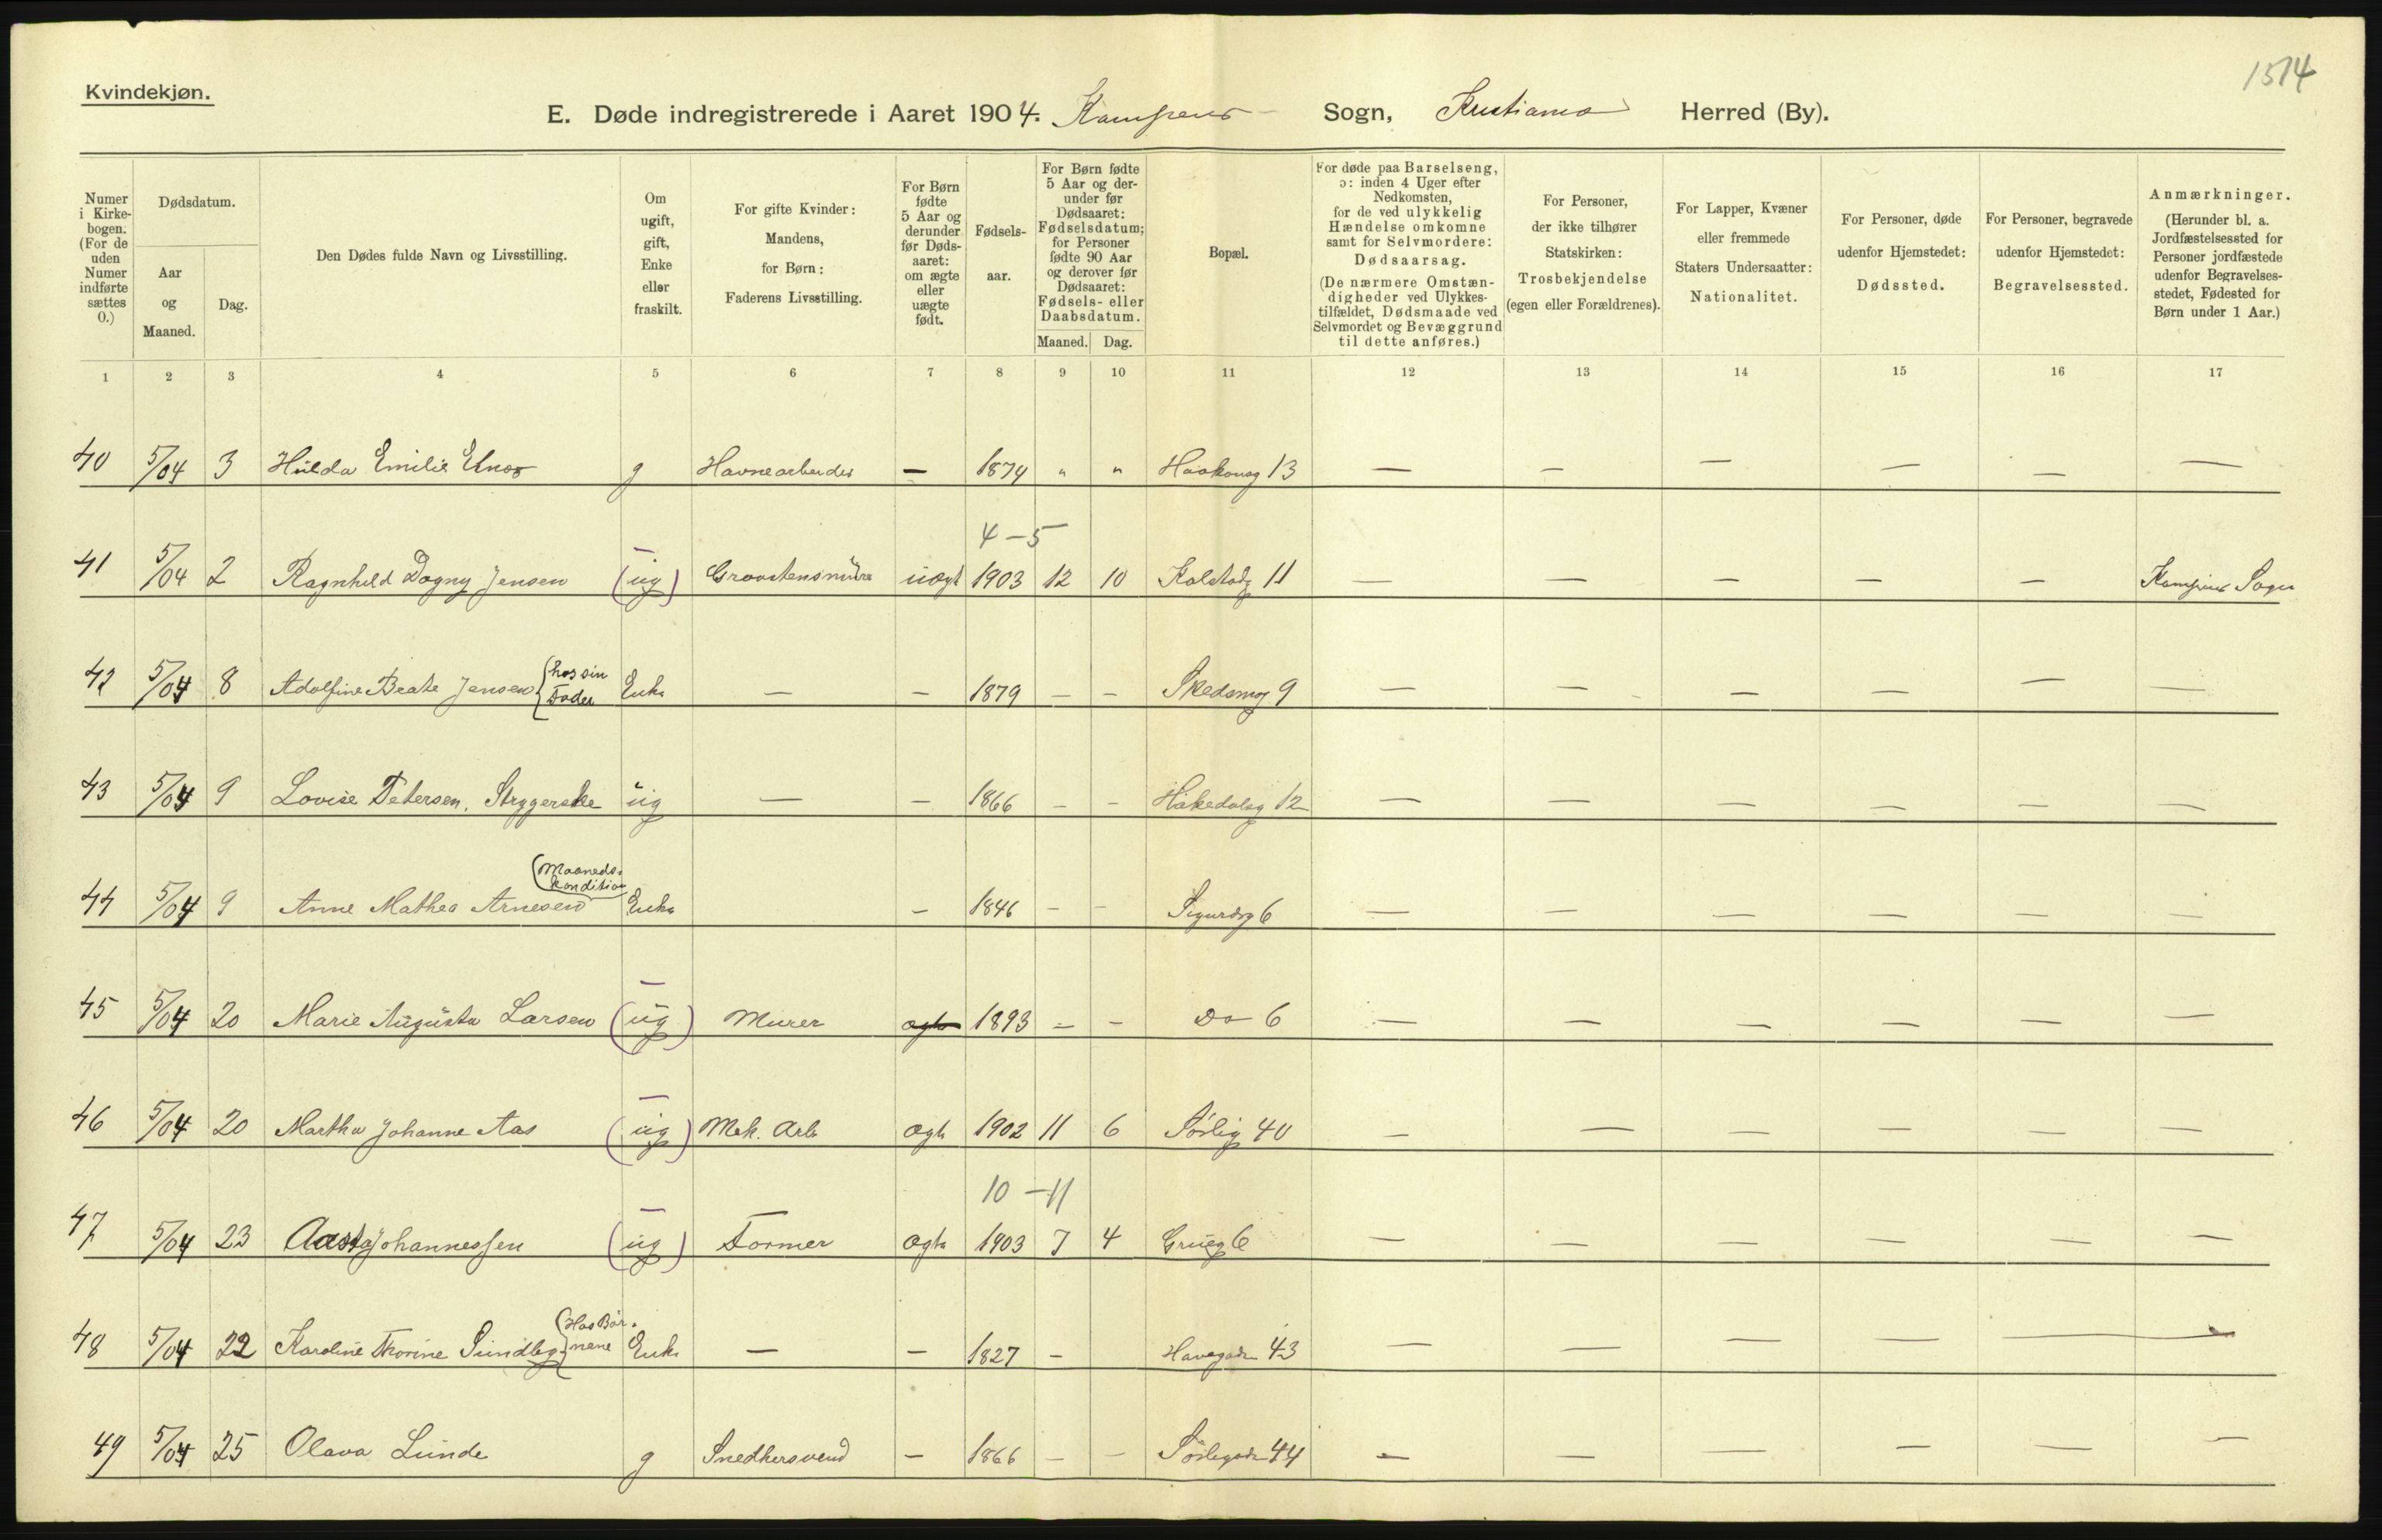 Kvindekjøn.
1514
E. Døde indregistrerede i Aaret 1904. Kampens Sogn, Kristiania Herred (By).
Numer i Kirkebogen. (For de uden Numer indførte sættes 0.)
Dødsdatum.
Aar og Maaned.
Dag.
Den Dødes fulde Navn og Livsstilling.
Om ugift, gift, Enke eller fraskilt.
For gifte Kvinder: Mandens, for Børn: Faderens Livsstilling.
For Børn fødte 5 Aar og derunder før Dødsaaret: om ægte eller uægte født.
Fødselsaar.
For Børn fødte 5 Aar og derunder før Dødsaaret: Fødselsdatum; for Personer fødte 90 Aar og derover før Dødsaaret: Fødsels- eller Daabsdatum.
Maaned. Dag.
Bopæl.
For døde paa Barselseng, ɔ: inden 4 Uger efter Nedkomsten, for de ved ulykkelig Hændelse omkomne samt for Selvmordere: Dødsaarsag. (De nærmere Omstændigheder ved Ulykkestilfældet, Dødsmaade ved Selvmordet og Bevæggrund til dette anføres.)
For Personer, der ikke tilhører Statskirken: Trosbekjendelse (egen eller Forældrenes).
For Lapper, Kvæner eller fremmede Staters Undersaatter: Nationalitet.
For Personer, døde udenfor Hjemstedet: Dødssted.
For Personer, begravede udenfor Hjemstedet: Begravelsessted.
Anmærkninger. (Herunder bl. a. Jordfæstelsessted for Personer jordfæstede udenfor Begravelsesstedet, Fødested for Børn under 1 Aar.)
1 2 3 4 5 6 7 8 9 10 11 12 13 14 15 16 17
40 5/04 3 Hulda Emilie g Havnearbeider — 1874 " " Haakonsg 13 — — — — — —
4 — 5
41 5/04 2 Ragnhild Dagny Jensen (ug) uægt 1903 12 10 Kolstadg 11 — — — — — Kampens Sogn
42 5/04 8 Adolfine Beate Jensen {hos sin Fader Enke — — 1879 — — Skedsmog 9 — — — — — —
43 5/04 9 Lovise Petersen, Strygerske ug — — 1866 — — Hakedalsg 12 — — — — — —
44 5/04 9 Anne Mathea Arnesen (Maanedskondition Enke — 1846 — — Sigurdsg 6 — — — — — —
45 5/04 20 Marie Augusta Larsen (ug) Murer ægte 1893 — — Do 6 — — — — — —
46 5/04 20 Martha Johanne Aas (ug) Mek. Arb ægte 1902 11 6 Sørlig 40 — — — — — —
10 — 11
47 5/04 23 Aasta Johannessen (ug) Former ægte 1903 7 4 Grueg 6 — — — — — —
48 5/04 22 Karoline Thorine {Hos Børnene Enke — — 1827 — Havegaden 43 — — — — — —
49 5/04 25 Olava Lunde g Snedkersvend — 1866 — — Sørligaden 44 — — — — — —